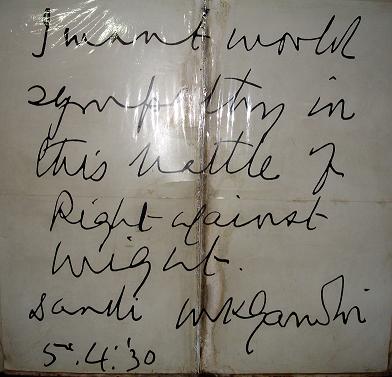 I want world
sympathy in
this battle of
Right against
might.
Dandi MKGandhi
5.4.'30